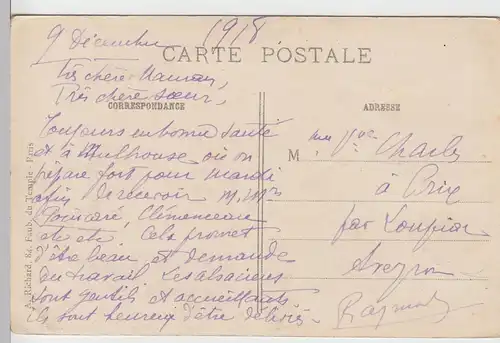 9 Décembre 1918
CARTE POSTALE
Très chère Maman,
Très chère sœur,
CORRESPONDANCE
Toujours en bonne santé
et à Mulhouse, où on
prépare fort pour mardi
afin de recevoir M. Mrs
Poincaré, Clémenceau
etc etc. Cela promet
d'être beau et demande
du travail. Les alsaciens
sont gentils et accueillants
ils sont heureux d'être délivrés.
ADRESSE
M me Vve Charles
à Prix
par Loupiac
Aveyron
A. Richard. 84, Faub. du Temple - Paris